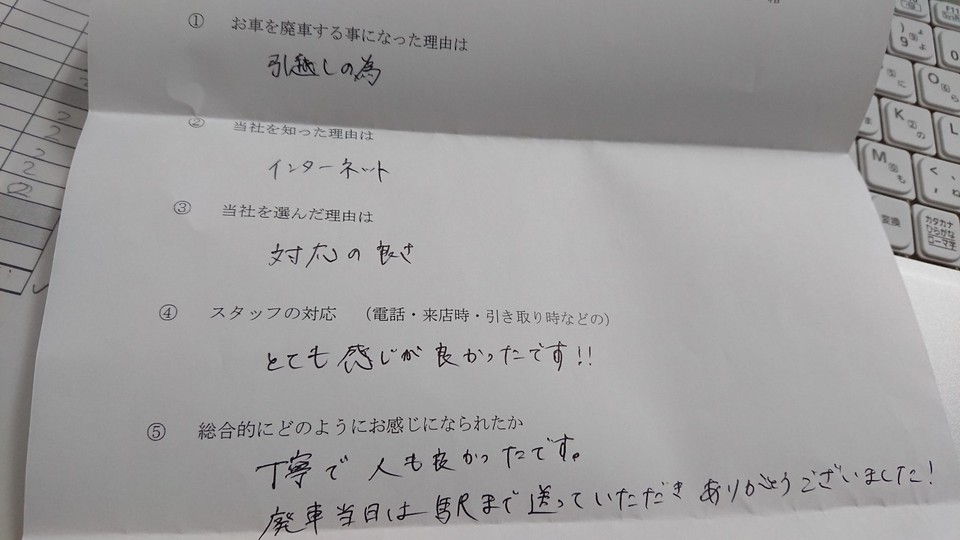 ① お車を廃車する事になった理由は
引越しの為
② 当社を知った理由は
インターネット
③ 当社を選んだ理由は
対応の良さ
④ スタッフの対応 (電話・来店時・引き取り時などの)
とても感じが良かったです!!
⑤ 総合的にどのようにお感じになられたか
丁寧で人も良かったです。
廃車当日は駅まで送っていただきありがとうございました!
2
2
2
2
F11
9
よ
O
ら
に
K
の
L
M
も
<
、
ね
変換
カタカナ
ひらがな
ローマ字